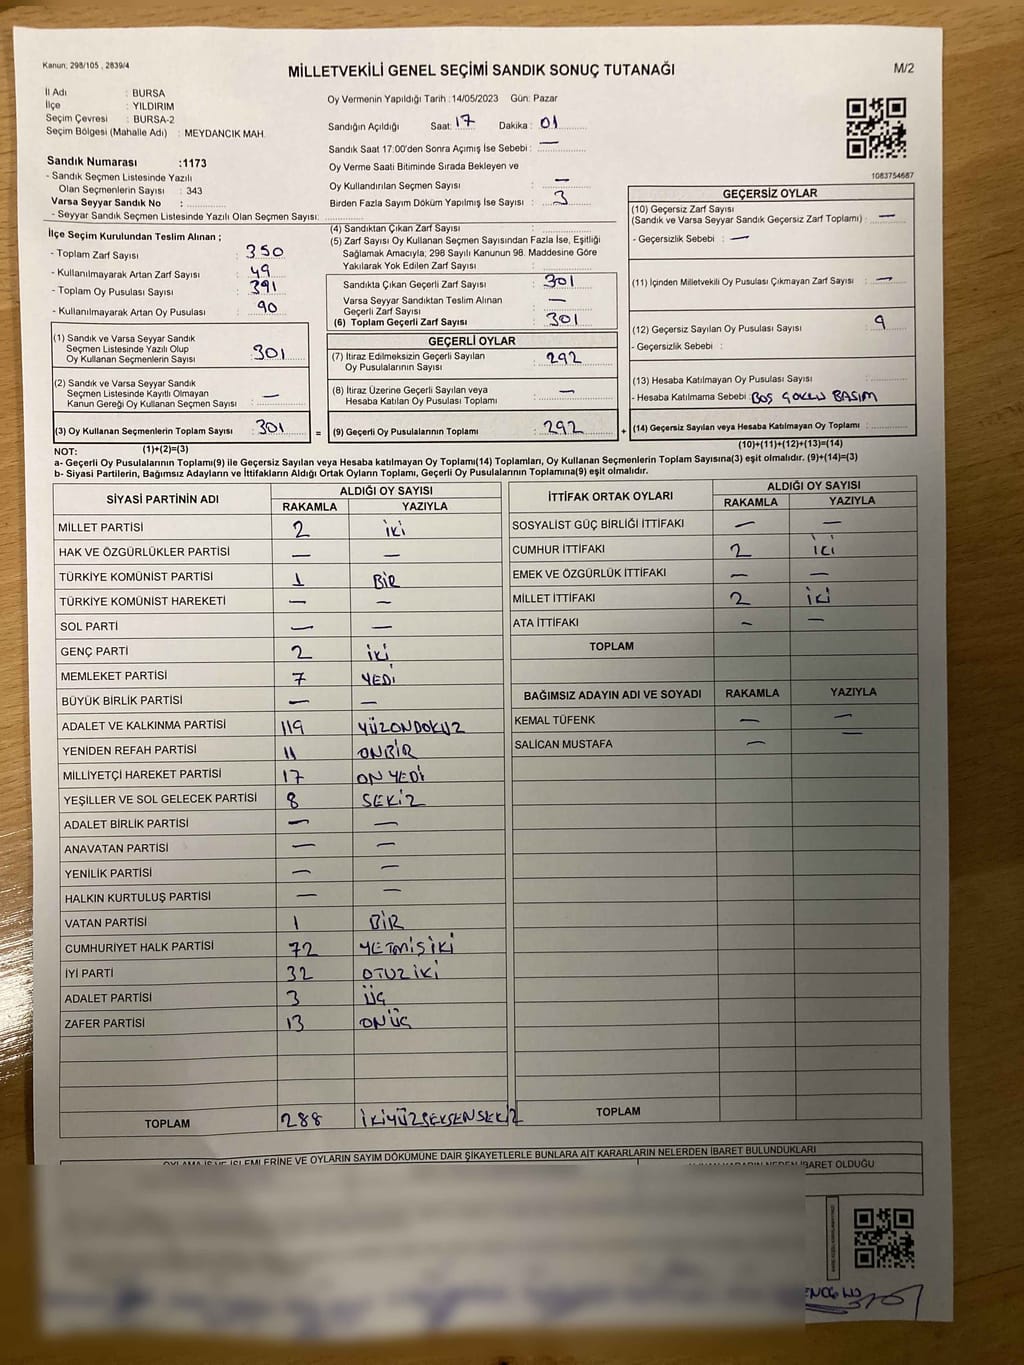 Kanun: 298/105 , 2839/4
MİLLETVEKİLİ GENEL SEÇİMİ SANDIK SONUÇ TUTANAĞI
M/2
İl Adı : BURSA
İlçe : YILDIRIM
Seçim Çevresi : BURSA-2
Seçim Bölgesi (Mahalle Adı) : MEYDANCIK MAH.
Sandık Numarası :1173
- Sandık Seçmen Listesinde Yazılı
Olan Seçmenlerin Sayısı : 343
Varsa Seyyar Sandık No :
- Seyyar Sandık Seçmen Listesinde Yazılı Olan Seçmen Sayısı:
Oy Vermenin Yapıldığı Tarih :14/05/2023 Gün: Pazar
Sandığın Açıldığı Saat: 17 Dakika : 01
Sandık Saat 17:00'den Sonra Açımış İse Sebebi : —
Oy Verme Saati Bitiminde Sırada Bekleyen ve
Oy Kullandırılan Seçmen Sayısı : —
Birden Fazla Sayım Döküm Yapılmış İse Sayısı : 3
1083754687
İlçe Seçim Kurulundan Teslim Alınan ;
- Toplam Zarf Sayısı : 350
- Kullanılmayarak Artan Zarf Sayısı : 49
- Toplam Oy Pusulası Sayısı : 391
- Kullanılmayarak Artan Oy Pusulası : 90
(1) Sandık ve Varsa Seyyar Sandık
Seçmen Listesinde Yazılı Olup
Oy Kullanan Seçmenlerin Sayısı : 301
(2) Sandık ve Varsa Seyyar Sandık
Seçmen Listesinde Kayıtlı Olmayan
Kanun Gereği Oy Kullanan Seçmen Sayısı : —
(3) Oy Kullanan Seçmenlerin Toplam Sayısı : 301
(1)+(2)=(3)
(4) Sandıktan Çıkan Zarf Sayısı :
(5) Zarf Sayısı Oy Kullanan Seçmen Sayısından Fazla İse, Eşitliği
Sağlamak Amacıyla, 298 Sayılı Kanunun 98. Maddesine Göre
Yakılarak Yok Edilen Zarf Sayısı :
Sandıkta Çıkan Geçerli Zarf Sayısı : 301
Varsa Seyyar Sandıktan Teslim Alınan
Geçerli Zarf Sayısı : —
(6) Toplam Geçerli Zarf Sayısı : 301
GEÇERLİ OYLAR
(7) İtiraz Edilmeksizin Geçerli Sayılan
Oy Pusulalarının Sayısı : 292
(8) İtiraz Üzerine Geçerli Sayılan veya
Hesaba Katılan Oy Pusulası Toplamı : —
= (9) Geçerli Oy Pusulalarının Toplamı : 292
GEÇERSİZ OYLAR
(10) Geçersiz Zarf Sayısı
(Sandık ve Varsa Seyyar Sandık Geçersiz Zarf Toplamı) : —
- Geçersizlik Sebebi : —
(11) İçinden Milletvekili Oy Pusulası Çıkmayan Zarf Sayısı : —
(12) Geçersiz Sayılan Oy Pusulası Sayısı : 9
- Geçersizlik Sebebi :
(13) Hesaba Katılmayan Oy Pusulası Sayısı :
- Hesaba Katılmama Sebebi : BOŞ BASIM
+ (14) Geçersiz Sayılan veya Hesaba Katılmayan Oy Toplamı :
(10)+(11)+(12)+(13)=(14)
NOT:
a- Geçerli Oy Pusulalarının Toplamı(9) ile Geçersiz Sayılan veya Hesaba katılmayan Oy Toplamı(14) Toplamları, Oy Kullanan Seçmenlerin Toplam Sayısına(3) eşit olmalıdır. (9)+(14)=(3)
b- Siyasi Partilerin, Bağımsız Adayların ve İttifakların Aldığı Ortak Oyların Toplamı, Geçerli Oy Pusulalarının Toplamına(9) eşit olmalıdır.
SİYASİ PARTİNİN ADI ALDIĞI OY SAYISI
RAKAMLA YAZIYLA
MİLLET PARTİSİ 2 İKİ
HAK VE ÖZGÜRLÜKLER PARTİSİ — —
TÜRKİYE KOMÜNİST PARTİSİ 1 BİR
TÜRKİYE KOMÜNİST HAREKETİ — —
SOL PARTİ — —
GENÇ PARTİ 2 İKİ
MEMLEKET PARTİSİ 7 YEDİ
BÜYÜK BİRLİK PARTİSİ — —
ADALET VE KALKINMA PARTİSİ 119 YÜZONDOKUZ
YENİDEN REFAH PARTİSİ 11 ONBİR
MİLLİYETÇİ HAREKET PARTİSİ 17 ONYEDİ
YEŞİLLER VE SOL GELECEK PARTİSİ 8 SEKİZ
ADALET BİRLİK PARTİSİ — —
ANAVATAN PARTİSİ — —
YENİLİK PARTİSİ — —
HALKIN KURTULUŞ PARTİSİ — —
VATAN PARTİSİ 1 BİR
CUMHURİYET HALK PARTİSİ 72 YETMİŞİKİ
İYİ PARTİ 32 OTUZİKİ
ADALET PARTİSİ 3 ÜÇ
ZAFER PARTİSİ 13 ONÜÇ
TOPLAM 288 İKİYÜZSEKSENSEKİZ
İTTİFAK ORTAK OYLARI ALDIĞI OY SAYISI
RAKAMLA YAZIYLA
SOSYALİST GÜÇ BİRLİĞİ İTTİFAKI — —
CUMHUR İTTİFAKI 2 İKİ
EMEK VE ÖZGÜRLÜK İTTİFAKI — —
MİLLET İTTİFAKI 2 İKİ
ATA İTTİFAKI — —
TOPLAM
BAĞIMSIZ ADAYIN ADI VE SOYADI RAKAMLA YAZIYLA
KEMAL TÜFENK — —
SALİCAN MUSTAFA — —
TOPLAM
OYLAMA İŞ VE İŞLEMLERİNE VE OYLARIN SAYIM DÖKÜMÜNE DAİR ŞİKAYETLERLE BUNLARA AİT KARARLARIN NELERDEN İBARET BULUNDUKLARI
NEDEN İBARET OLDUĞU